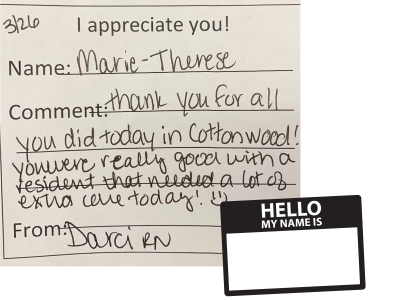 3/26
I appreciate you!
Name: Marie-Therese
Comment: thank you for all
you did today in Cottonwood!
you were really good with a
resident that needed a lot of
extra care today! :)
From: Darci RN
HELLO
MY NAME IS